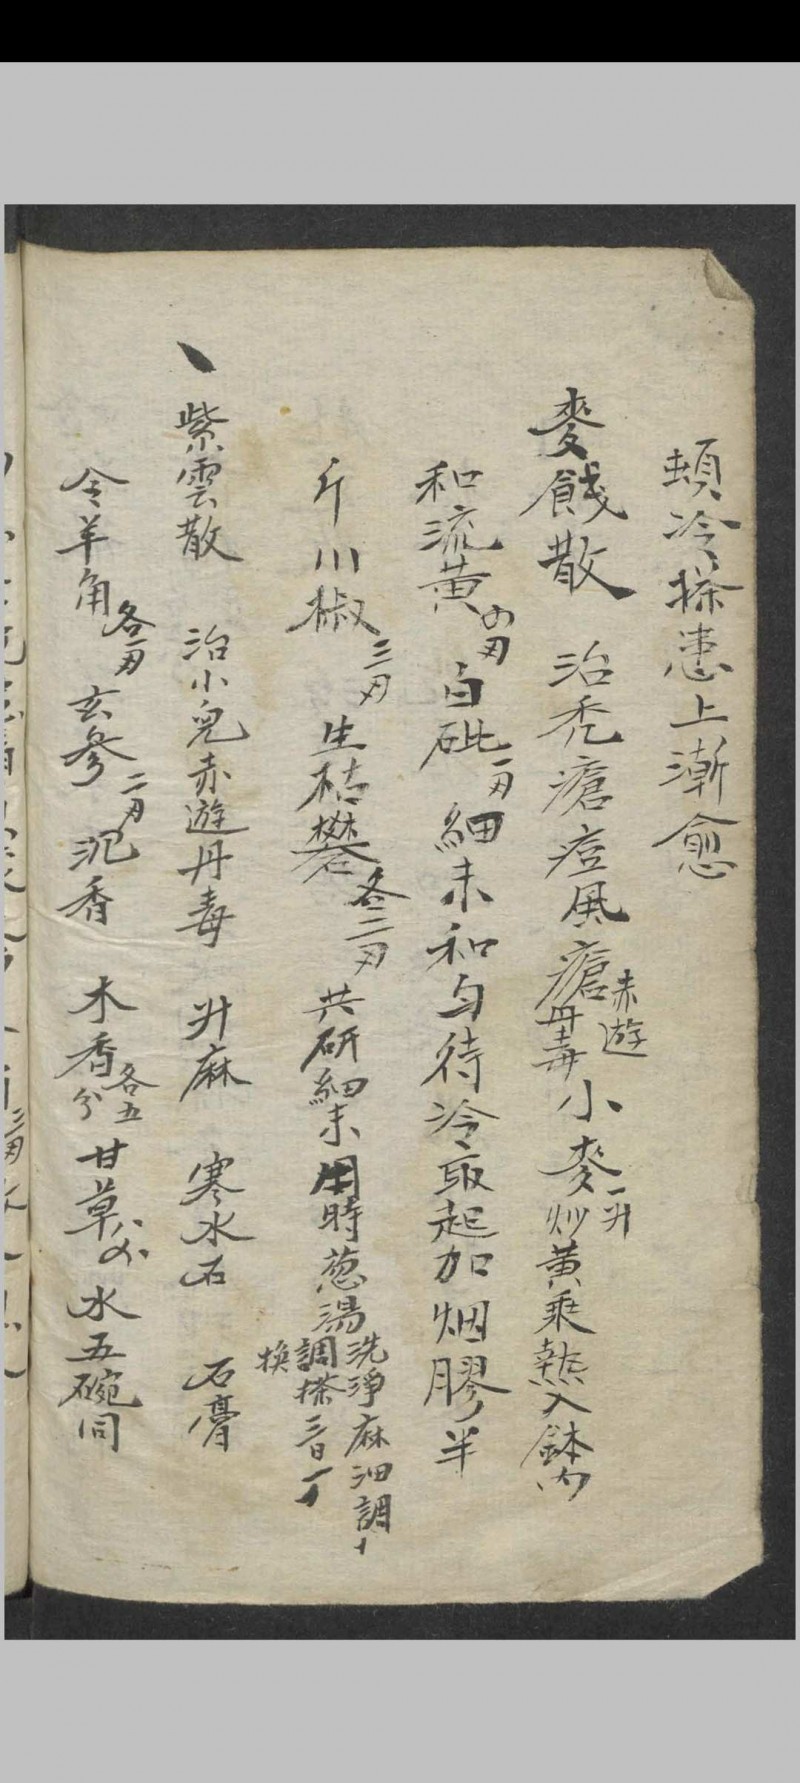 頓冷搽患上漸愈
麥餞散 治禿瘡痘風瘡赤遊丹毒小麥一升炒黃乘熱入鉢內
和流黃四刄白砒一刄細末和勻待冷取起加烟膠半
斤川椒三刄生枯礬各二刄共研細末用時葱湯洗淨麻油調搽三日一換
紫雲散 治小兒赤遊丹毒 升麻 寒水石 石膏
令羊角各一刄 玄參二刄 沉香 木香各五分 甘草八分 水五碗同